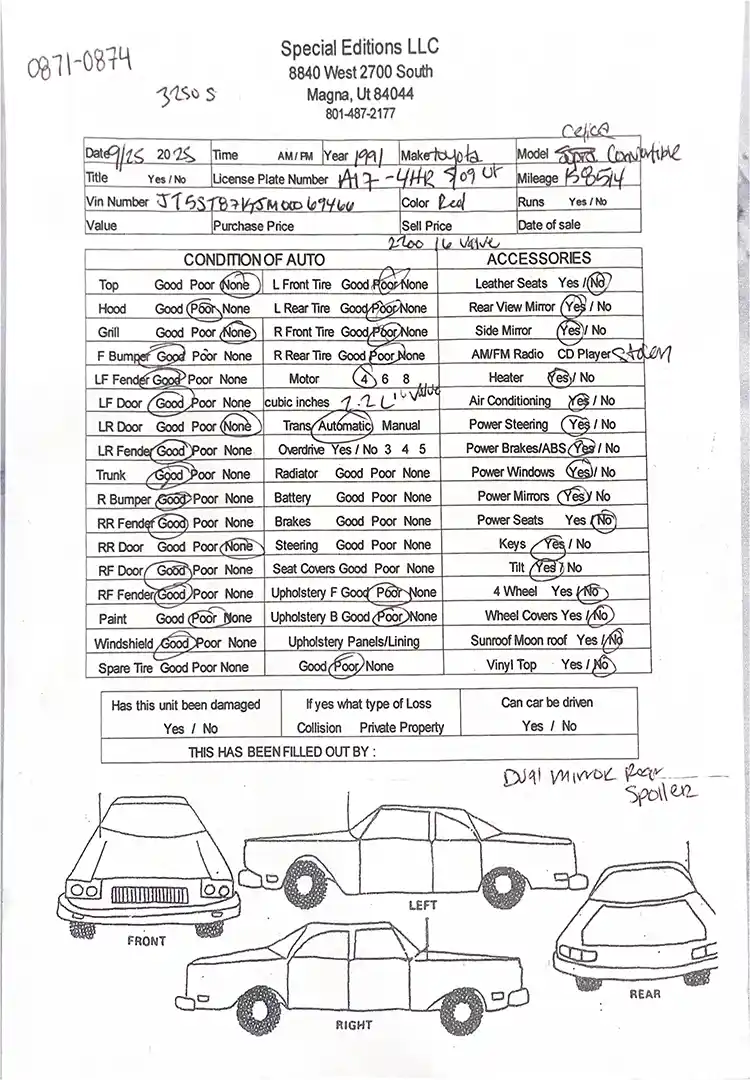 0871-0874
3250 S
Special Editions LLC
8840 West 2700 South
Magna, Ut 84044
801-487-2177
Celica
Date 9/25 2025 Time AM / PM Year 1991 Make toyota Model Convertible
Title Yes / No License Plate Number A17-4HR 09 Ut Mileage
Vin Number JT5ST87K5M0069466 Color Red Runs Yes / No
Value Purchase Price Sell Price Date of sale
2200 16 valve
CONDITION OF AUTO ACCESSORIES
Top Good Poor None L Front Tire Good Poor None Leather Seats Yes / No
Hood Good Poor None L Rear Tire Good Poor None Rear View Mirror Yes / No
Grill Good Poor None R Front Tire Good Poor None Side Mirror Yes / No
F Bumper Good Poor None R Rear Tire Good Poor None AM/FM Radio CD Player Stolen
LF Fender Good Poor None Motor 4 6 8 Heater Yes / No
LF Door Good Poor None cubic inches 2.2 L 16 Valve Air Conditioning Yes / No
LR Door Good Poor None Trans Automatic Manual Power Steering Yes / No
LR Fender Good Poor None Overdrive Yes / No 3 4 5 Power Brakes/ABS Yes / No
Trunk Good Poor None Radiator Good Poor None Power Windows Yes / No
R Bumper Good Poor None Battery Good Poor None Power Mirrors Yes / No
RR Fender Good Poor None Brakes Good Poor None Power Seats Yes / No
RR Door Good Poor None Steering Good Poor None Keys Yes / No
RF Door Good Poor None Seat Covers Good Poor None Tilt Yes / No
RF Fender Good Poor None Upholstery F Good Poor None 4 Wheel Yes / No
Paint Good Poor None Upholstery B Good Poor None Wheel Covers Yes / No
Windshield Good Poor None Upholstery Panels/Lining Sunroof Moon roof Yes / No
Spare Tire Good Poor None Good Poor None Vinyl Top Yes / No
Has this unit been damaged If yes what type of Loss Can car be driven
Yes / No Collision Private Property Yes / No
THIS HAS BEEN FILLED OUT BY :
Dual Mirror Rear
Spoiler
LEFT
FRONT
REAR
RIGHT